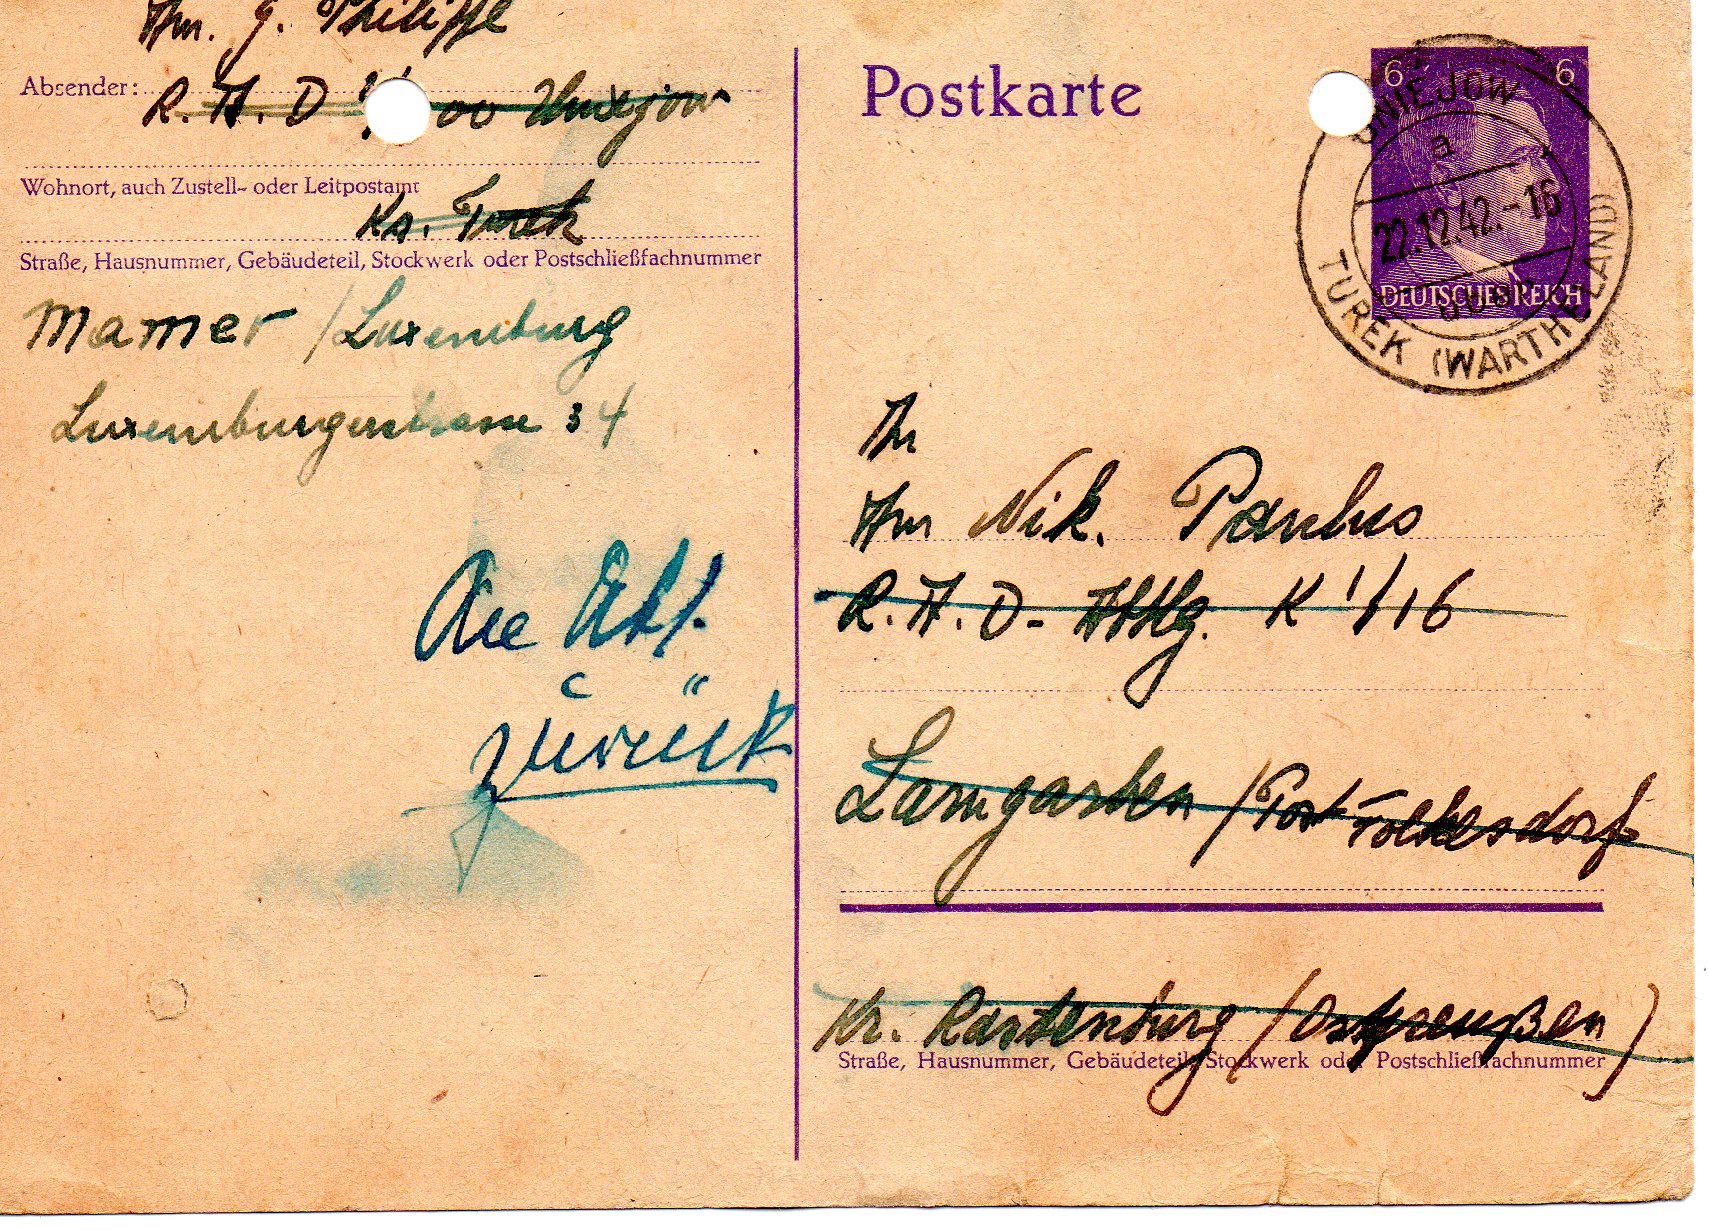 Hrn. J. Philippe
Absender:
R. A. D. 00 Uniejow
Wohnort, auch Zustell- oder Leitpostamt
Ks. Turek
Straße, Hausnummer, Gebäudeteil, Stockwerk oder Postschließfachnummer
Mamer / Luxemburg
Luxemburgerstrasse 34
Abs.
zurück
Postkarte
6 6
DEUTSCHES REICH
UNIEJOW
a
22.12.42.-16
TUREK (WARTHELAND)
Hrn Nik. Paulus
R. A. D. - Abtlg. K 1/116
Lamgarben / Post Tolksdorf
Kr. Rastenburg (Ostpreußen)
Straße, Hausnummer, Gebäudeteil, Stockwerk oder Postschließfachnummer